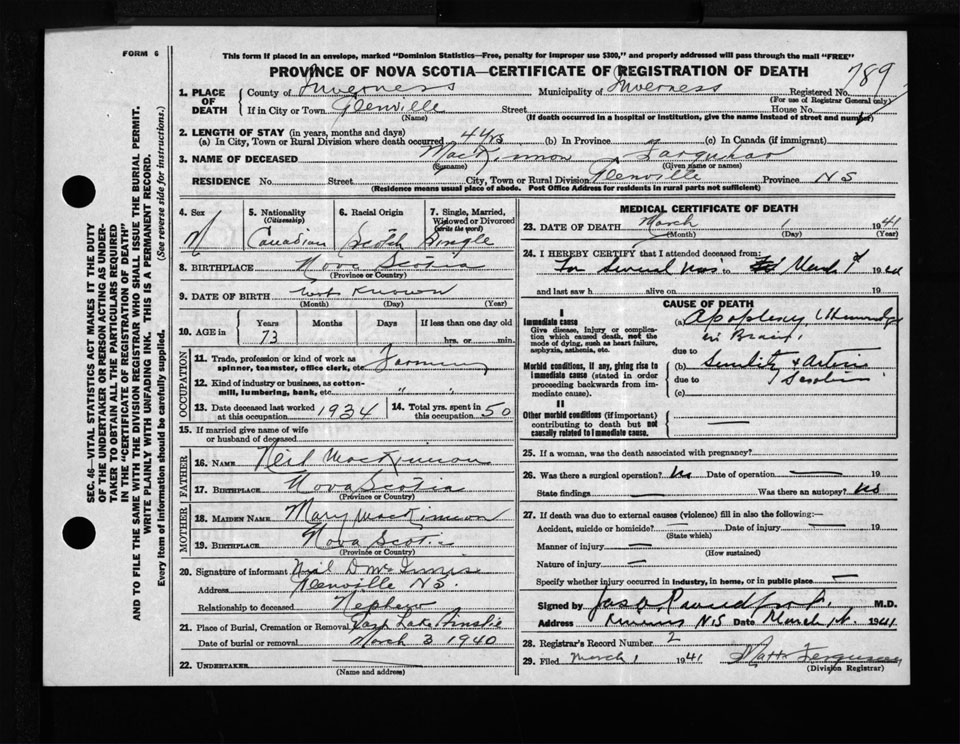 FORM 6
This form if placed in an envelope, marked "Dominion Statistics—Free, penalty for improper use $300," and properly addressed will pass through the mail "FREE"
PROVINCE OF NOVA SCOTIA—CERTIFICATE OF REGISTRATION OF DEATH
789
1. PLACE OF DEATH
County of Inverness Municipality of Inverness Registered No.
(For use of Registrar General only)
If in City or Town Glenville Street House No.
(Name) (If death occurred in a hospital or institution, give the name instead of street and number)
2. LENGTH OF STAY (in years, months and days)
(a) In City, Town or Rural Division where death occurred 44 yrs (b) In Province (c) In Canada (if immigrant)
3. NAME OF DECEASED MacKinnon Farquhar
(Surname) (Given name or names)
RESIDENCE No. Street City, Town or Rural Division Glenville Province N S
(Residence means usual place of abode. Post Office Address for residents in rural parts not sufficient)
SEC. 46—VITAL STATISTICS ACT MAKES IT THE DUTY
OF THE UNDERTAKER OR PERSON ACTING AS UNDER-
TAKER TO OBTAIN ALL THE PARTICULARS REQUIRED
IN THE "CERTIFICATE OF REGISTRATION OF DEATH"
AND TO FILE THE SAME WITH THE DIVISION REGISTRAR WHO SHALL ISSUE THE BURIAL PERMIT.
WRITE PLAINLY WITH UNFADING INK. THIS IS A PERMANENT RECORD.
Every item of information should be carefully supplied. (See reverse side for instructions.)
4. Sex M
5. Nationality (Citizenship) Canadian
6. Racial Origin Scotch
7. Single, Married, Widowed or Divorced (write the word) Single
8. BIRTHPLACE Nova Scotia
(Province or Country)
9. DATE OF BIRTH not known
(Month) (Day) (Year)
10. AGE in Years Months Days If less than one day old
73 hrs. or min.
OCCUPATION
11. Trade, profession or kind of work as spinner, teamster, office clerk, etc. Farming
12. Kind of industry or business, as cotton-mill, lumbering, bank, etc. " "
13. Date deceased last worked at this occupation 1934
14. Total yrs. spent in this occupation 50
15. If married give name of wife or husband of deceased
FATHER
16. NAME Neil MacKinnon
17. BIRTHPLACE Nova Scotia
(Province or Country)
MOTHER
18. MAIDEN NAME Mary MacKinnon
19. BIRTHPLACE Nova Scotia
(Province or Country)
20. Signature of informant Neil D McInnis
Address Glenville N S.
Relationship to deceased Nephew
21. Place of Burial, Cremation or Removal East Lake Ainslie
Date of burial or removal March 3 1940
22. UNDERTAKER
(Name and address)
MEDICAL CERTIFICATE OF DEATH
23. DATE OF DEATH March 1 1941
(Month) (Day) (Year)
24. I HEREBY CERTIFY that I attended deceased from:
For several to March 1st 19
and last saw h alive on 19
CAUSE OF DEATH
I
Immediate cause
Give disease, injury or complication which caused death, not the mode of dying, such as heart failure, asphyxia, asthenia, etc.
(a) Apoplexy,
in Brain,
due to
Morbid conditions, if any, giving rise to immediate cause (stated in order proceeding backwards from immediate cause).
(b) Senility & Arterio
due to
(c)
II
Other morbid conditions (if important) contributing to death but not causally related to immediate cause.
25. If a woman, was the death associated with pregnancy?
26. Was there a surgical operation? No Date of operation 19
State findings Was there an autopsy? No
27. If death was due to external causes (violence) fill in also the following:—
Accident, suicide or homicide? Date of injury 19
(State which)
Manner of injury
(How sustained)
Nature of injury
Specify whether injury occurred in industry, in home, or in public place
Signed by Jas M.D.
Address N S Date March 1st. 1941
28. Registrar's Record Number 2
29. Filed March 1 1941 Ferguson
(Division Registrar)